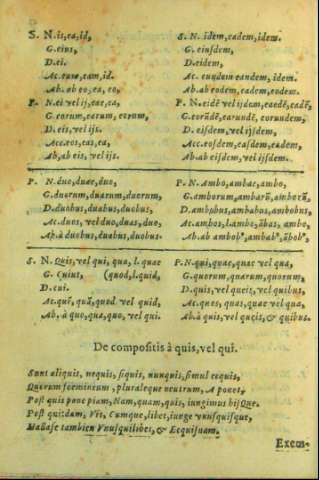 S. N. is, ea, id,
G. eius,
D. ei.
Ac. eum, eam, id.
Ab. ab eo, ea, eo,
P. N. ei vel ij, eae, ea,
G. eorum, earum, eorum,
D. eis, vel ijs.
Acc. eos, eas, ea,
Ab, ab eis, vel ijs.
S. N. idem, eadem, idem.
G. eiusdem,
D. eidem,
Ac. eundem eandem, idem.
Ab. ab eodem, eadem, eodem.
P. N. eidē vel ijdem, eaedē, eadē,
G. eorūdē, earundē, eorundem,
D. eisdem, vel ijsdem.
Acc. eosdem, easdem, eadem
Ab. ab eisdem, vel ijsdem.
P. N. duo, duae, duo,
G. duorum, duarum, duorum,
D. duobus, duabus, duobus,
Ac. duos, vel duo, duas, duo,
Ab. à duobus, duabus, duobus.
P. N. Ambo, ambae, ambo,
G. amborum, ambarū, amborū,
D. ambobus, ambabus, ambobus,
Ac. ambos, l. ambo, ābas, ambo,
Ab. ab ambobꝰ, ambabꝰ, ābobꝰ,
S. N. Quis, vel qui, qua, l. quae
G. Cuius, (quod, l. quid,
D. cui.
Ac. quē, quā, quod vel quid,
Ab. à quo, qua, quo, vel qui.
P. N. qui, quae, quae vel qua,
G. quorum, quarum, quorum,
D. quis, vel queis, vel quibus,
Ac. ques, quas, quae vel qua,
Ab. à quis, vel queis, & quibus.
De compositis à quis, vel qui.
Sunt aliquis, nequis, siquis, nunquis, simul ecquis,
Quorum foemineum, pluraleque neutrum, A ponet,
Post quis pone piam, Nam, quam, quis, iungimus hisQue.
Post qui: dam, Vis, Cumque, libet, iunge vnusquisque,
Hallase tambien Vnusquilibet, & Ecquisnam.
Excus-